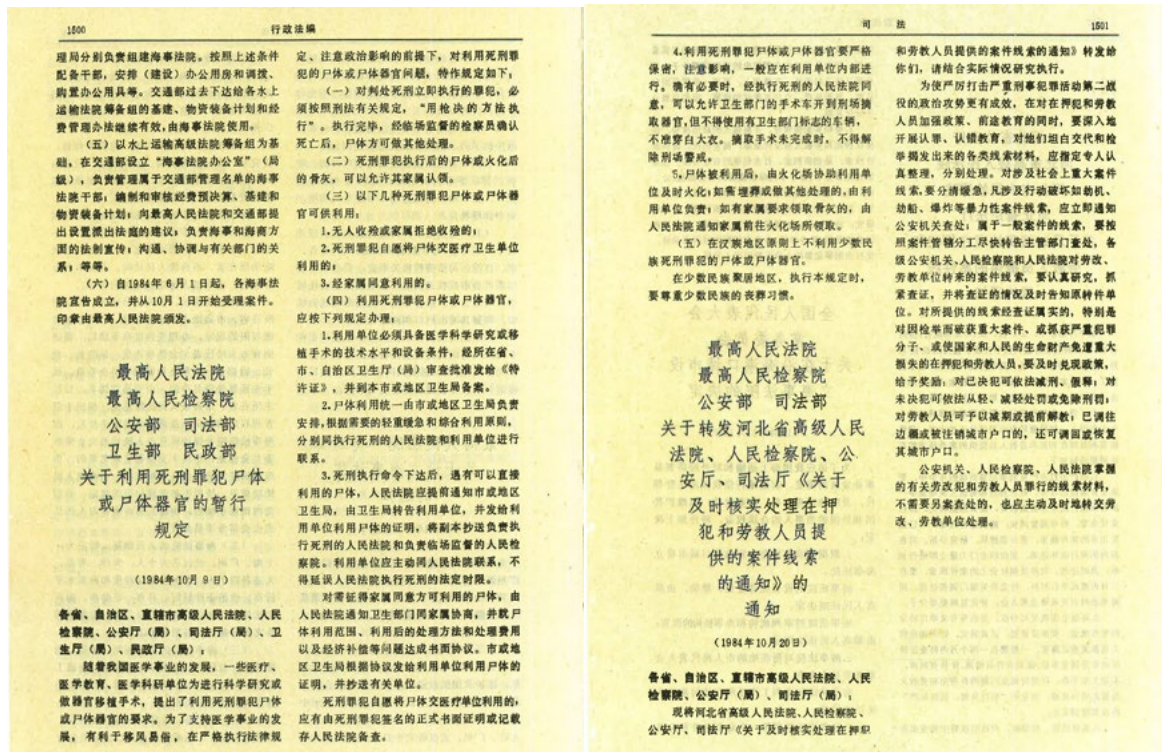 1500
行政法编
理局分别负责组建海事法院。按照上述条件
配备干部，安排（建设）办公用房和调拨、
购置办公用具等。交通部过去下达给各水上
运输法院筹备组的基建、物资装备计划和经
费管理办法继续有效，由海事法院使用。
（五）以水上运输高级法院筹备组为基
础，在交通部设立“海事法院办公室”（局
级），负责管理属于交通部管理名单的海事
法院干部；编制和审核经费预决算、基建和
物资装备计划；向最高人民法院和交通部提
出设置派出法庭的建议；负责海事和海商方
面的法制宣传；沟通、协调与有关部门的关
系；等等。
（六）自1984年6月1日起，各海事法
院宣告成立，并从10月1日开始受理案件。
印章由最高人民法院颁发。
最高人民法院
最高人民检察院
公安部 司法部
卫生部 民政部
关于利用死刑罪犯尸体
或尸体器官的暂行
规定
（1984年10月9日）
各省、自治区、直辖市高级人民法院、人民
检察院、公安厅（局）、司法厅（局）、卫
生厅（局）、民政厅（局）：
随着我国医学事业的发展，一些医疗、
医学教育、医学科研单位为进行科学研究或
做器官移植手术，提出了利用死刑罪犯尸体
或尸体器官的要求。为了支持医学事业的发
展，有利于移风易俗，在严格执行法律规
定、注意政治影响的前提下，对利用死刑罪
犯的尸体或尸体器官问题，特作规定如下：
（一）对判处死刑立即执行的罪犯，必
须按照刑法有关规定，“用枪决的方法执
行”。执行完毕，经临场监督的检察员确认
死亡后，尸体方可做其他处理。
（二）死刑罪犯执行后的尸体或火化后
的骨灰，可以允许其家属认领。
（三）以下几种死刑罪犯尸体或尸体器
官可供利用：
1.无人收殓或家属拒绝收殓的；
2.死刑罪犯自愿将尸体交医疗卫生单位
利用的；
3.经家属同意利用的。
（四）利用死刑罪犯尸体或尸体器官，
应按下列规定办理：
1.利用单位必须具备医学科学研究或移
植手术的技术水平和设备条件，经所在省、
市、自治区卫生厅（局）审查批准发给《特
许证》，并到本市或地区卫生局备案。
2.尸体利用统一由市或地区卫生局负责
安排，根据需要的轻重缓急和综合利用原则，
分别同执行死刑的人民法院和利用单位进行
联系。
3.死刑执行命令下达后，遇有可以直接
利用的尸体，人民法院应提前通知市或地区
卫生局，由卫生局转告利用单位，并发给利
用单位利用尸体的证明，将副本抄送负责执
行死刑的人民法院和负责临场监督的人民检
察院。利用单位应主动同人民法院联系，不
得延误人民法院执行死刑的法定时限。
对需征得家属同意方可利用的尸体，由
人民法院通知卫生部门同家属协商，并就尸
体利用范围、利用后的处理方法和处理费用
以及经济补偿等问题达成书面协议。市或地
区卫生局根据协议发给利用单位利用尸体的
证明，并抄送有关单位。
死刑罪犯自愿将尸体交医疗单位利用的，
应有由死刑罪犯签名的正式书面证明或记载
存人民法院备查。
司 法
1501
4.利用死刑罪犯尸体或尸体器官要严格
保密，注意影响，一般应在利用单位内部进
行。确有必要时，经执行死刑的人民法院同
意，可以允许卫生部门的手术车开到刑场摘
取器官，但不得使用有卫生部门标志的车辆，
不准穿白大衣。摘取手术未完成时，不得解
除刑场警戒。
5.尸体被利用后，由火化场协助利用单
位及时火化；如需埋葬或做其他处理的，由利
用单位负责；如有家属要求领取骨灰的，由
人民法院通知家属前往火化场所领取。
（五）在汉族地区原则上不利用少数民
族死刑罪犯的尸体或尸体器官。
在少数民族聚居地区，执行本规定时，
要尊重少数民族的丧葬习惯。
最高人民法院
最高人民检察院
公安部 司法部
关于转发河北省高级人民
法院、人民检察院、公
安厅、司法厅《关于
及时核实处理在押
犯和劳教人员提
供的案件线索
的通知》的
通知
（1984年10月20日）
各省、自治区、直辖市高级人民法院、人民
检察院、公安厅（局）、司法厅（局）：
现将河北省高级人民法院、人民检察院、
公安厅、司法厅《关于及时核实处理在押犯
和劳教人员提供的案件线索的通知》转发给
你们，请结合实际情况研究执行。
为使严厉打击严重刑事犯罪活动第二战
役的政治攻势更有成效，在对在押犯和劳教
人员加强政策、前途教育的同时，要深入地
开展认罪、认错教育，对他们坦白交代和检
举揭发出来的各类线索材料，应指定专人认
真整理，分别处理。对涉及社会上重大案件
线索，要分清缓急，凡涉及行动破坏如劫机、
劫船、爆炸等暴力性案件线索，应立即通知
公安机关查处；属于一般案件的线索，要按
照案件管辖分工尽快转告主管部门查处，各
级公安机关、人民检察院和人民法院对劳改、
劳教单位转来的案件线索，要认真研究，抓
紧查证，并将查证的情况及时告知原转件单
位。对所提供的线索经查证属实的，特别是
对因检举而破获重大案件、或抓获严重犯罪
分子、或使国家和人民的生命财产免遭重大
损失的在押犯和劳教人员，要及时兑现政策，
给予奖励；对已决犯可依法减刑、假释；对
未决犯可依法从轻、减轻处罚或免除刑罚；
对劳教人员可予以减期或提前解教；已调往
边疆或被注销城市户口的，还可调回或恢复
其城市户口。
公安机关、人民检察院、人民法院掌握
的有关劳改犯和劳教人员罪行的线索材料，
不需要另案查处的，也应主动及时地转交劳
改、劳教单位处理。